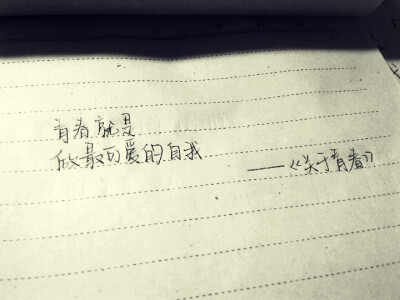 青春就是
做最可爱的自我
——《关于青春》